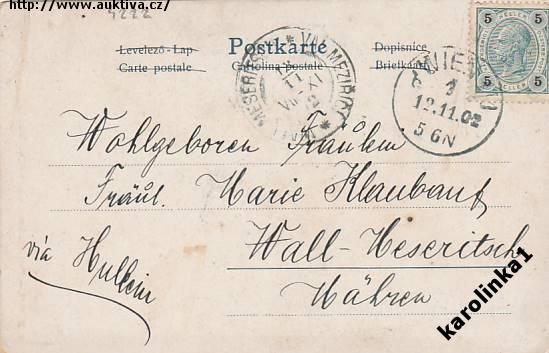 http://www.auktiva.cz/
4222
Levelező-Lap Postkarte Dopisnice
Carte postale Cartolina postale Briefkaart
5 5
HELLER
5 5
WIEN
12.11.02
5 6N
VAL. MEZIŘÍČÍ
MESERITSCH
Wohlgeboren Fräulein
Fräul. Marie Klaubauf
Wall-Meseritsch
via Hullein
Mähren
karolinka1